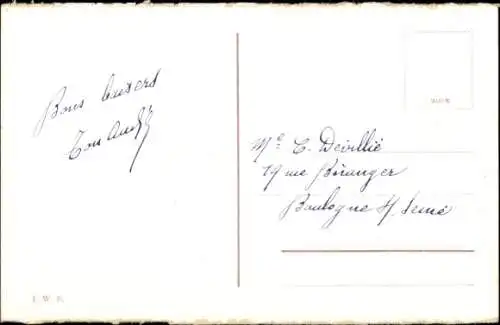 Bons baisers
Ton André
Me C. Devillié
19 rue Béranger
Boulogne s/ Seine